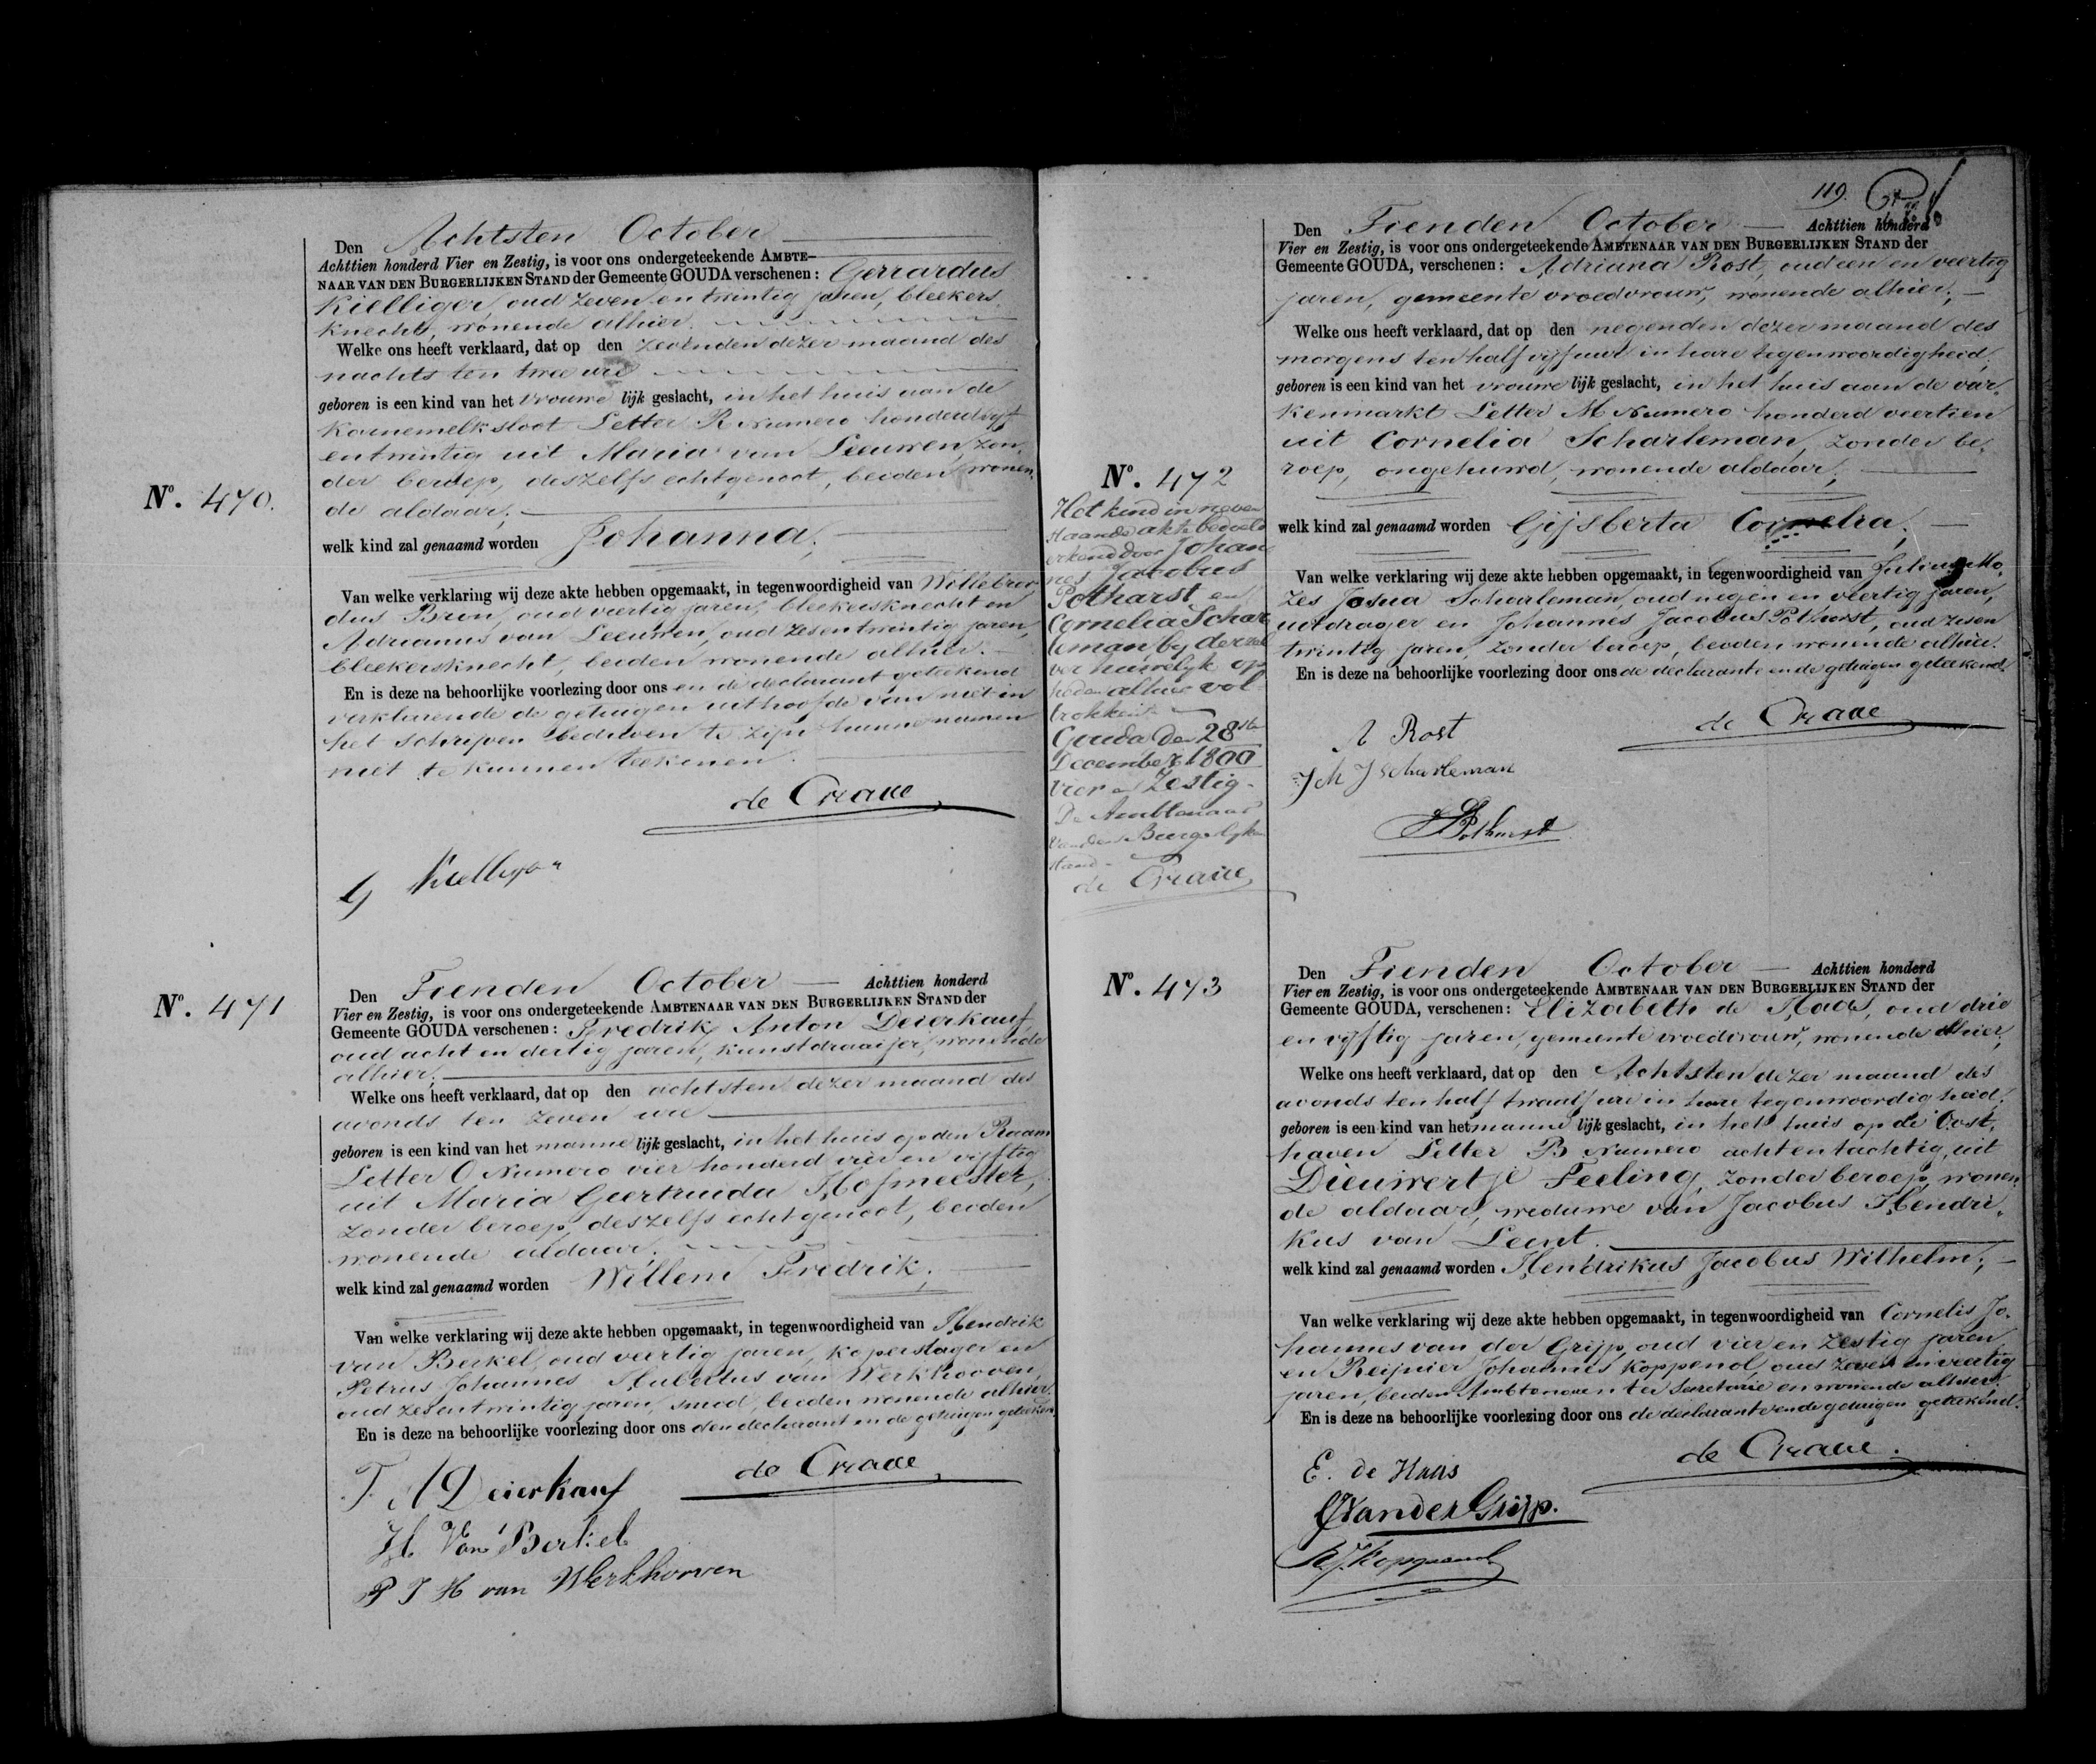 Nº. 470.
Den Achtsten October
Achttien honderd Vier en Zestig, is voor ons ondergeteekende AMBTE-
NAAR VAN DEN BURGERLIJKEN STAND der Gemeente GOUDA verschenen: Gerrardus
Kielliger, oud zeven en twintig jaren, bleekers
knecht, wonende alhier.
Welke ons heeft verklaard, dat op den zevenden dezer maand des
nachts ten twee ure
geboren is een kind van het vrouwe lijk geslacht, in het huis aan de
Karnemelksloot Letter R Numero honderd vijf
en twintig uit Maria van Leeuwen, zon-
der beroep, deszelfs echtgenoot, beiden wonen-
de aldaar;
welk kind zal genaamd worden Johanna;
Van welke verklaring wij deze akte hebben opgemaakt, in tegenwoordigheid van Willebror
dus Bron, oud veertig jaren, bleekersknecht en
Adrianus van Leeuwen, oud zesentwintig jaren,
bleekersknecht, beiden wonende alhier.
En is deze na behoorlijke voorlezing door ons en de declarant geteekend
verklarende de getuigen uithoofde van niet in
het schrijven bedreven te zijn hunne namen
niet te kunnen teekenen.
de Craae
G Kielliger
Nº. 471
Den Tienden October Achttien honderd
Vier en Zestig, is voor ons ondergeteekende AMBTENAAR VAN DEN BURGERLIJKEN STAND der
Gemeente GOUDA verschenen: Fredrik Anton Deierkauf,
oud acht en dertig jaren, kunstdraaijer, wonende
alhier;
Welke ons heeft verklaard, dat op den achtsten dezer maand des
avonds ten zeven ure
geboren is een kind van het manne lijk geslacht, in het huis op den Raam
Letter O Numero vier honderd vier en vijftig
uit Maria Geertruida Hofmeester,
zonder beroep, deszelfs echtgenoot, beiden
wonende aldaar;
welk kind zal genaamd worden Willem Fredrik;
Van welke verklaring wij deze akte hebben opgemaakt, in tegenwoordigheid van Hendrik
van Berkel, oud veertig jaren, koperslager en
Petrus Johannes Hubertus van Werkhooven,
oud zesentwintig jaren, smid, beiden wonende alhier.
En is deze na behoorlijke voorlezing door ons den declarant en de getuigen geteekend
F. A Deierkauf
de Craae
H. Van Berkel
P J H van Werkhoven
119.
Nº. 472
Het kind in neven
staande akte bedoeld
erkend door Johan
nes Jacobus
Potharst en
Cornelia Schar
leman by der zel
ver huwelyk op
heden alhier vol
trokken.
Gouda den 28ste
December 1800
vier en Zestig.
De Ambtenaar
van den Burgerlyken
stand.
de Craae
Den Tienden October Achttien honderd
Vier en Zestig, is voor ons ondergeteekende AMBTENAAR VAN DEN BURGERLIJKEN STAND der
Gemeente GOUDA, verschenen: Adriana Rost, oud een en veertig
jaren, gemeente vroedvrouw, wonende alhier;
Welke ons heeft verklaard, dat op den negenden dezer maand des
morgens ten half vijf ure in hare tegenwoordigheid,
geboren is een kind van het vrouwe lijk geslacht, in het huis aan de var-
kenmarkt Letter M Numero honderd veertien
uit Cornelia Scharleman, zonder be-
roep, ongehuwd, wonende aldaar;
welk kind zal genaamd worden Gijsberta Cornelia;
Van welke verklaring wij deze akte hebben opgemaakt, in tegenwoordigheid van Julius Mo-
zes Josua Scharleman, oud negen en veertig jaren,
uitdrager en Johannes Jacobus Potharst, oud zesen
twintig jaren, zonder beroep, beiden wonende alhier.
En is deze na behoorlijke voorlezing door ons de declarante en de getuigen geteekend.
A Rost
de Craae
J M J Scharleman
JJPotharst
Nº. 473
Den Tienden October Achttien honderd
Vier en Zestig, is voor ons ondergeteekende AMBTENAAR VAN DEN BURGERLIJKEN STAND der
Gemeente GOUDA, verschenen: Elizabeth de Haas, oud drie
en vijftig jaren, gemeente vroedvrouw, wonende alhier,
Welke ons heeft verklaard, dat op den Achtsten dezer maand des
avonds ten half twaalf ure in hare tegenwoordigheid,
geboren is een kind van het manne lijk geslacht, in het huis op de Oost-
haven Letter B Numero achtentachtig, uit
Dieuwertje Feeling, zonder beroep, wonen-
de aldaar, weduwe van Jacobus Hendri-
kus van Leent.
welk kind zal genaamd worden Hendrikus Jacobus Wilhelm;
Van welke verklaring wij deze akte hebben opgemaakt, in tegenwoordigheid van Cornelis Jo-
hannes van der Grijp, oud vier en zestig jaren
en Reijnier Johannes Koppenol, oud zeven en veertig
jaren, beiden Ambtenaren ter Secretarie en wonende alhier.
En is deze na behoorlijke voorlezing door ons de declarante en de getuigen geteekend.
E. de Haas
de Craae.
CJVanderGrijp.
R.J. Koppenol